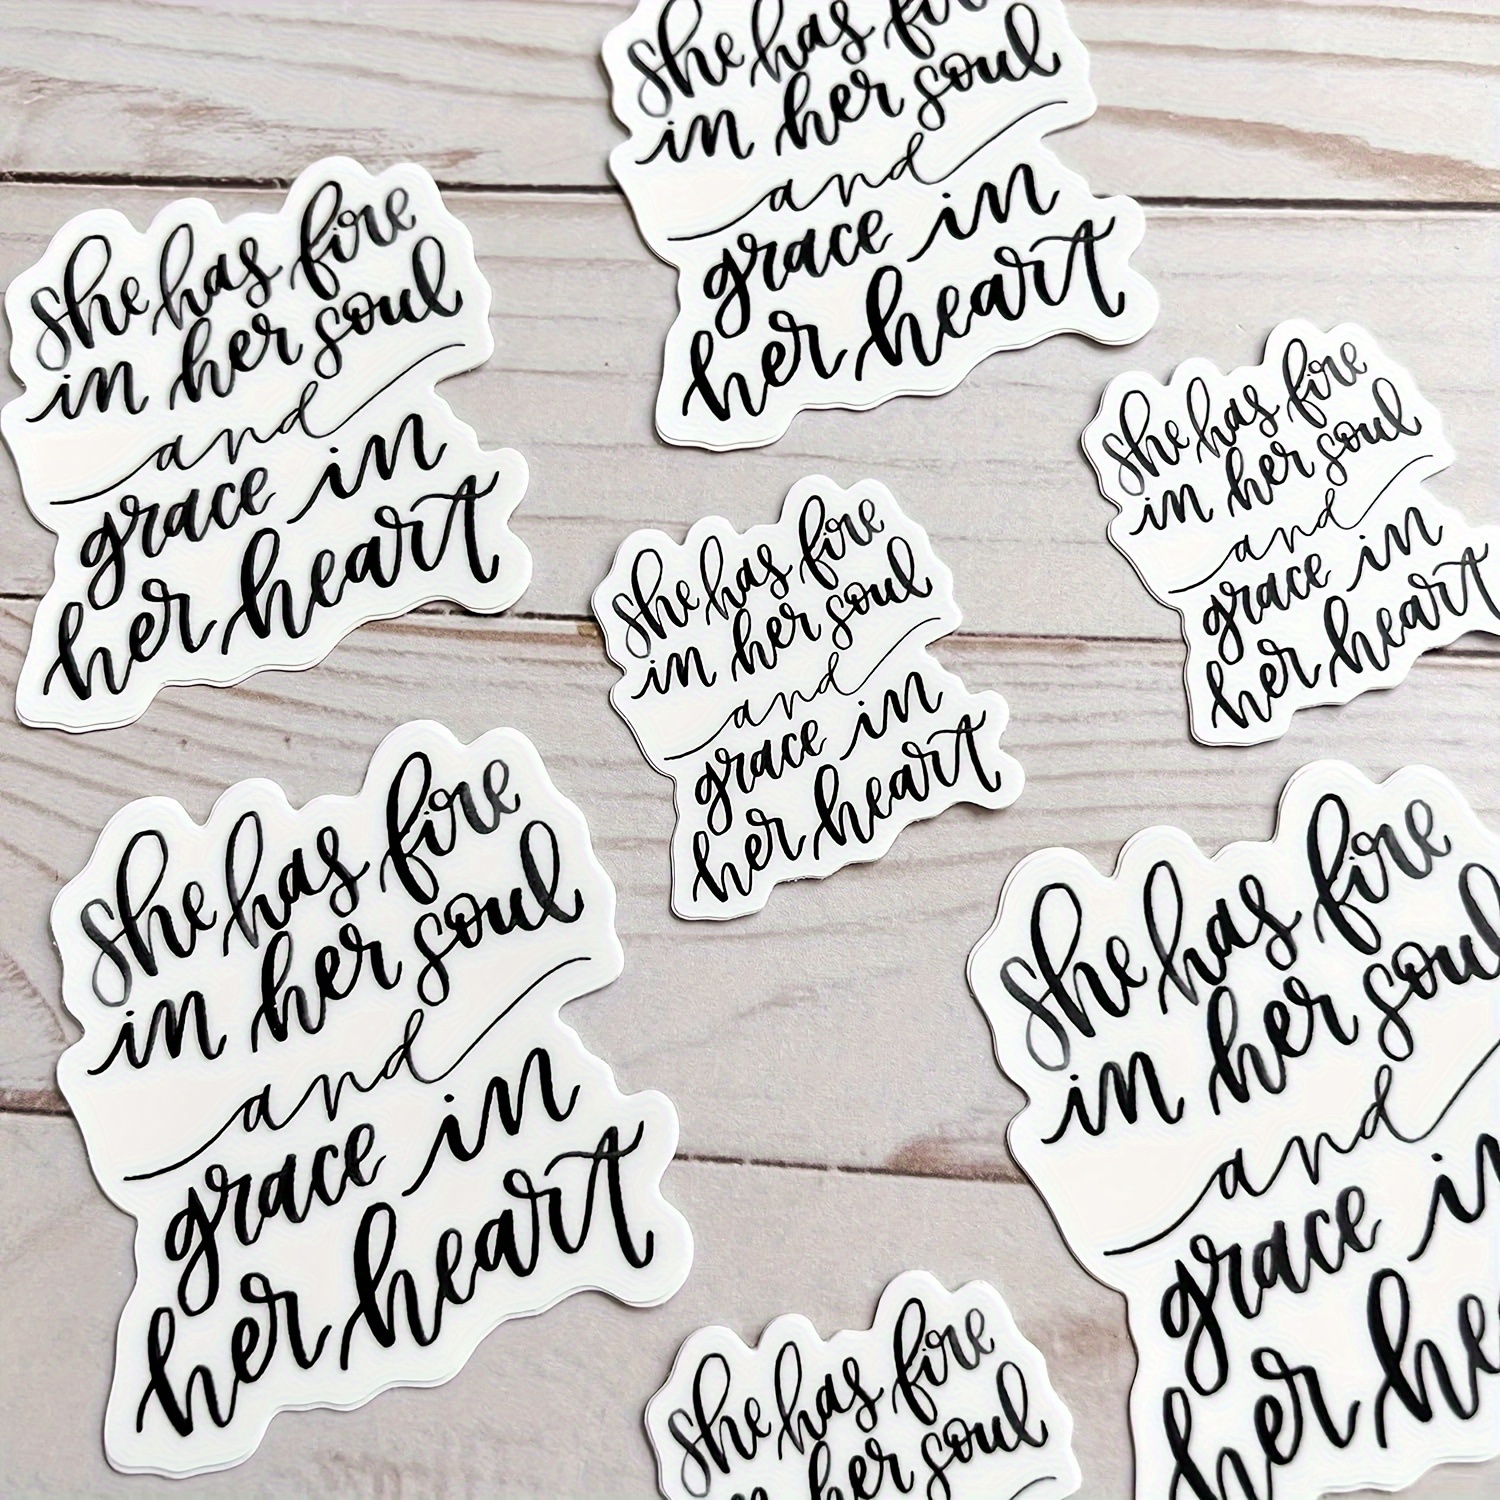 she has fire
in her soul
and
grace in
her heart
she has fire
in her soul
and
grace in
her heart
she has fire
in her soul
and
grace in
her heart
she has fire
in her soul
and
grace in
her heart
she has fire
in her soul
and
grace in
her heart
she has fire
in her soul
and
grace in
her he
she has fire
in her soul